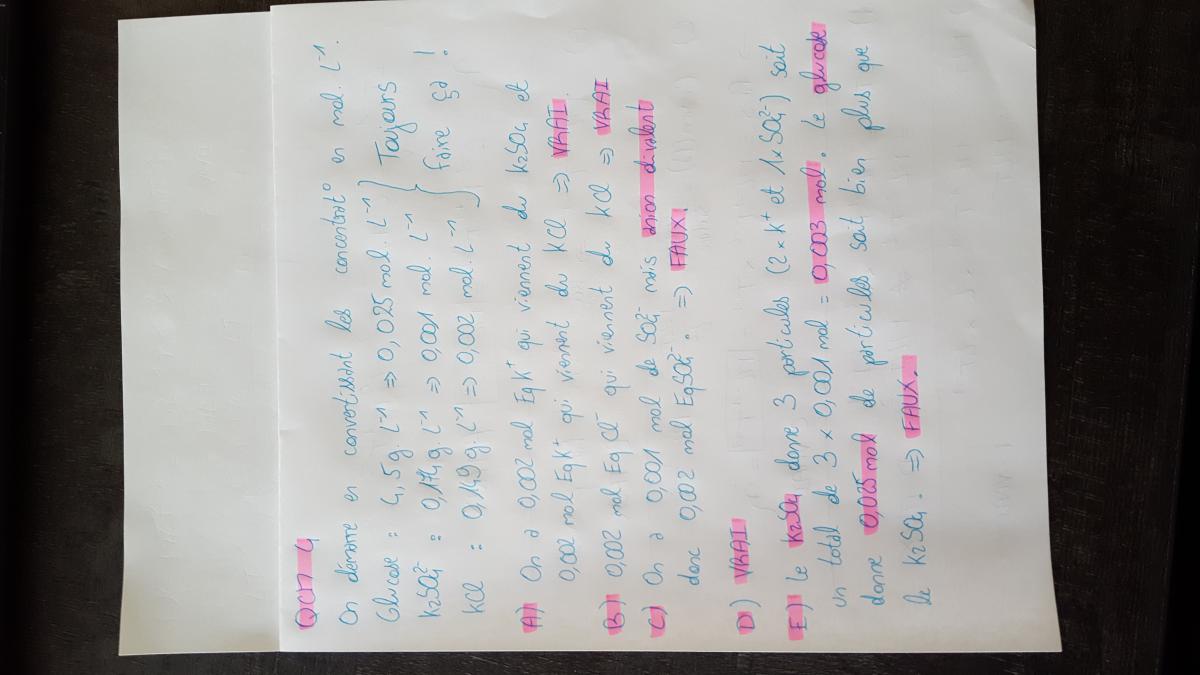 QCM 4
On démarre en convertissant les concentrat° en mol. L⁻¹.
Glucose : 4,5 g. L⁻¹ => 0,025 mol. L⁻¹ } Toujours
K₂SO₄²⁻ : 0,174 g. L⁻¹ => 0,001 mol. L⁻¹ } faire ça !
KCl : 0,149 g. L⁻¹ => 0,002 mol. L⁻¹
A) On a 0,002 mol EqK⁺ qui viennent du K₂SO₄ et
0,002 mol EqK⁺ qui viennent du KCl => VRAI.
B) 0,002 mol Eq Cl⁻ qui viennent du KCl => VRAI
C) On a 0,001 mol de SO₄²⁻ mais anion divalent
donc 0,002 mol EqSO₄²⁻. => FAUX.
D) VRAI
E) Le K₂SO₄ donne 3 particules (2 x K⁺ et 1 x SO₄²⁻) soit
un total de 3 x 0,001 mol = 0,003 mol. Le glucose
donne 0,025 mol de particules soit bien plus que
le K₂SO₄. => FAUX.